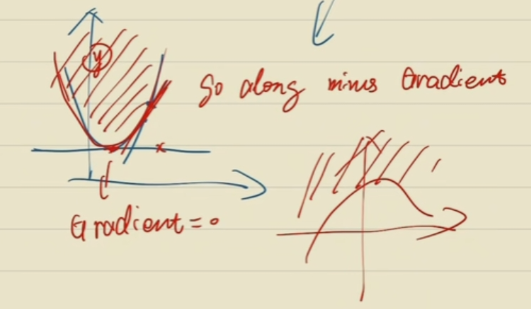 y
Go along minus Gradient
x
Gradient = 0